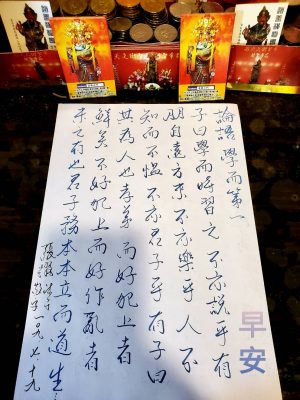 論語 學而第一
子曰學而時習之不亦說乎有
朋自遠方來不亦樂乎人不
知而不慍不亦君子乎有子曰
其為人也孝弟而好犯上者
鮮矣不好犯上而好作亂者
未之有也君子務本本立而道生
早安